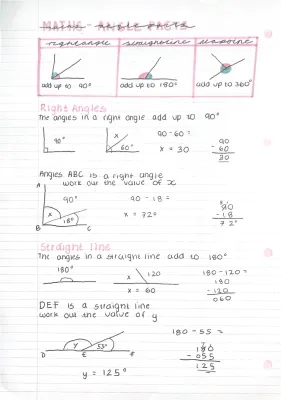 MATHS - ANGLE FACTS
right angle straight line
add up to 90° add up to 180° add up to 360°
Right Angles
The angles in a right angle add up to 90°
90° x 60° 90-60= x = 30
90
- 60
30
Angles ABC is a right angle
work out the value of x
A 90° 90 - 18 =
x 18° x = 72°
B C
90
- 18
72°
Straight line
The angles in a straight line add to 180°
180° x 120 180 - 120 =
x = 60
180
- 120
060
DEF is a straight line
work out the value of y
180 - 55 =
y 55°
D E F
180
- 055
125
y = 125°